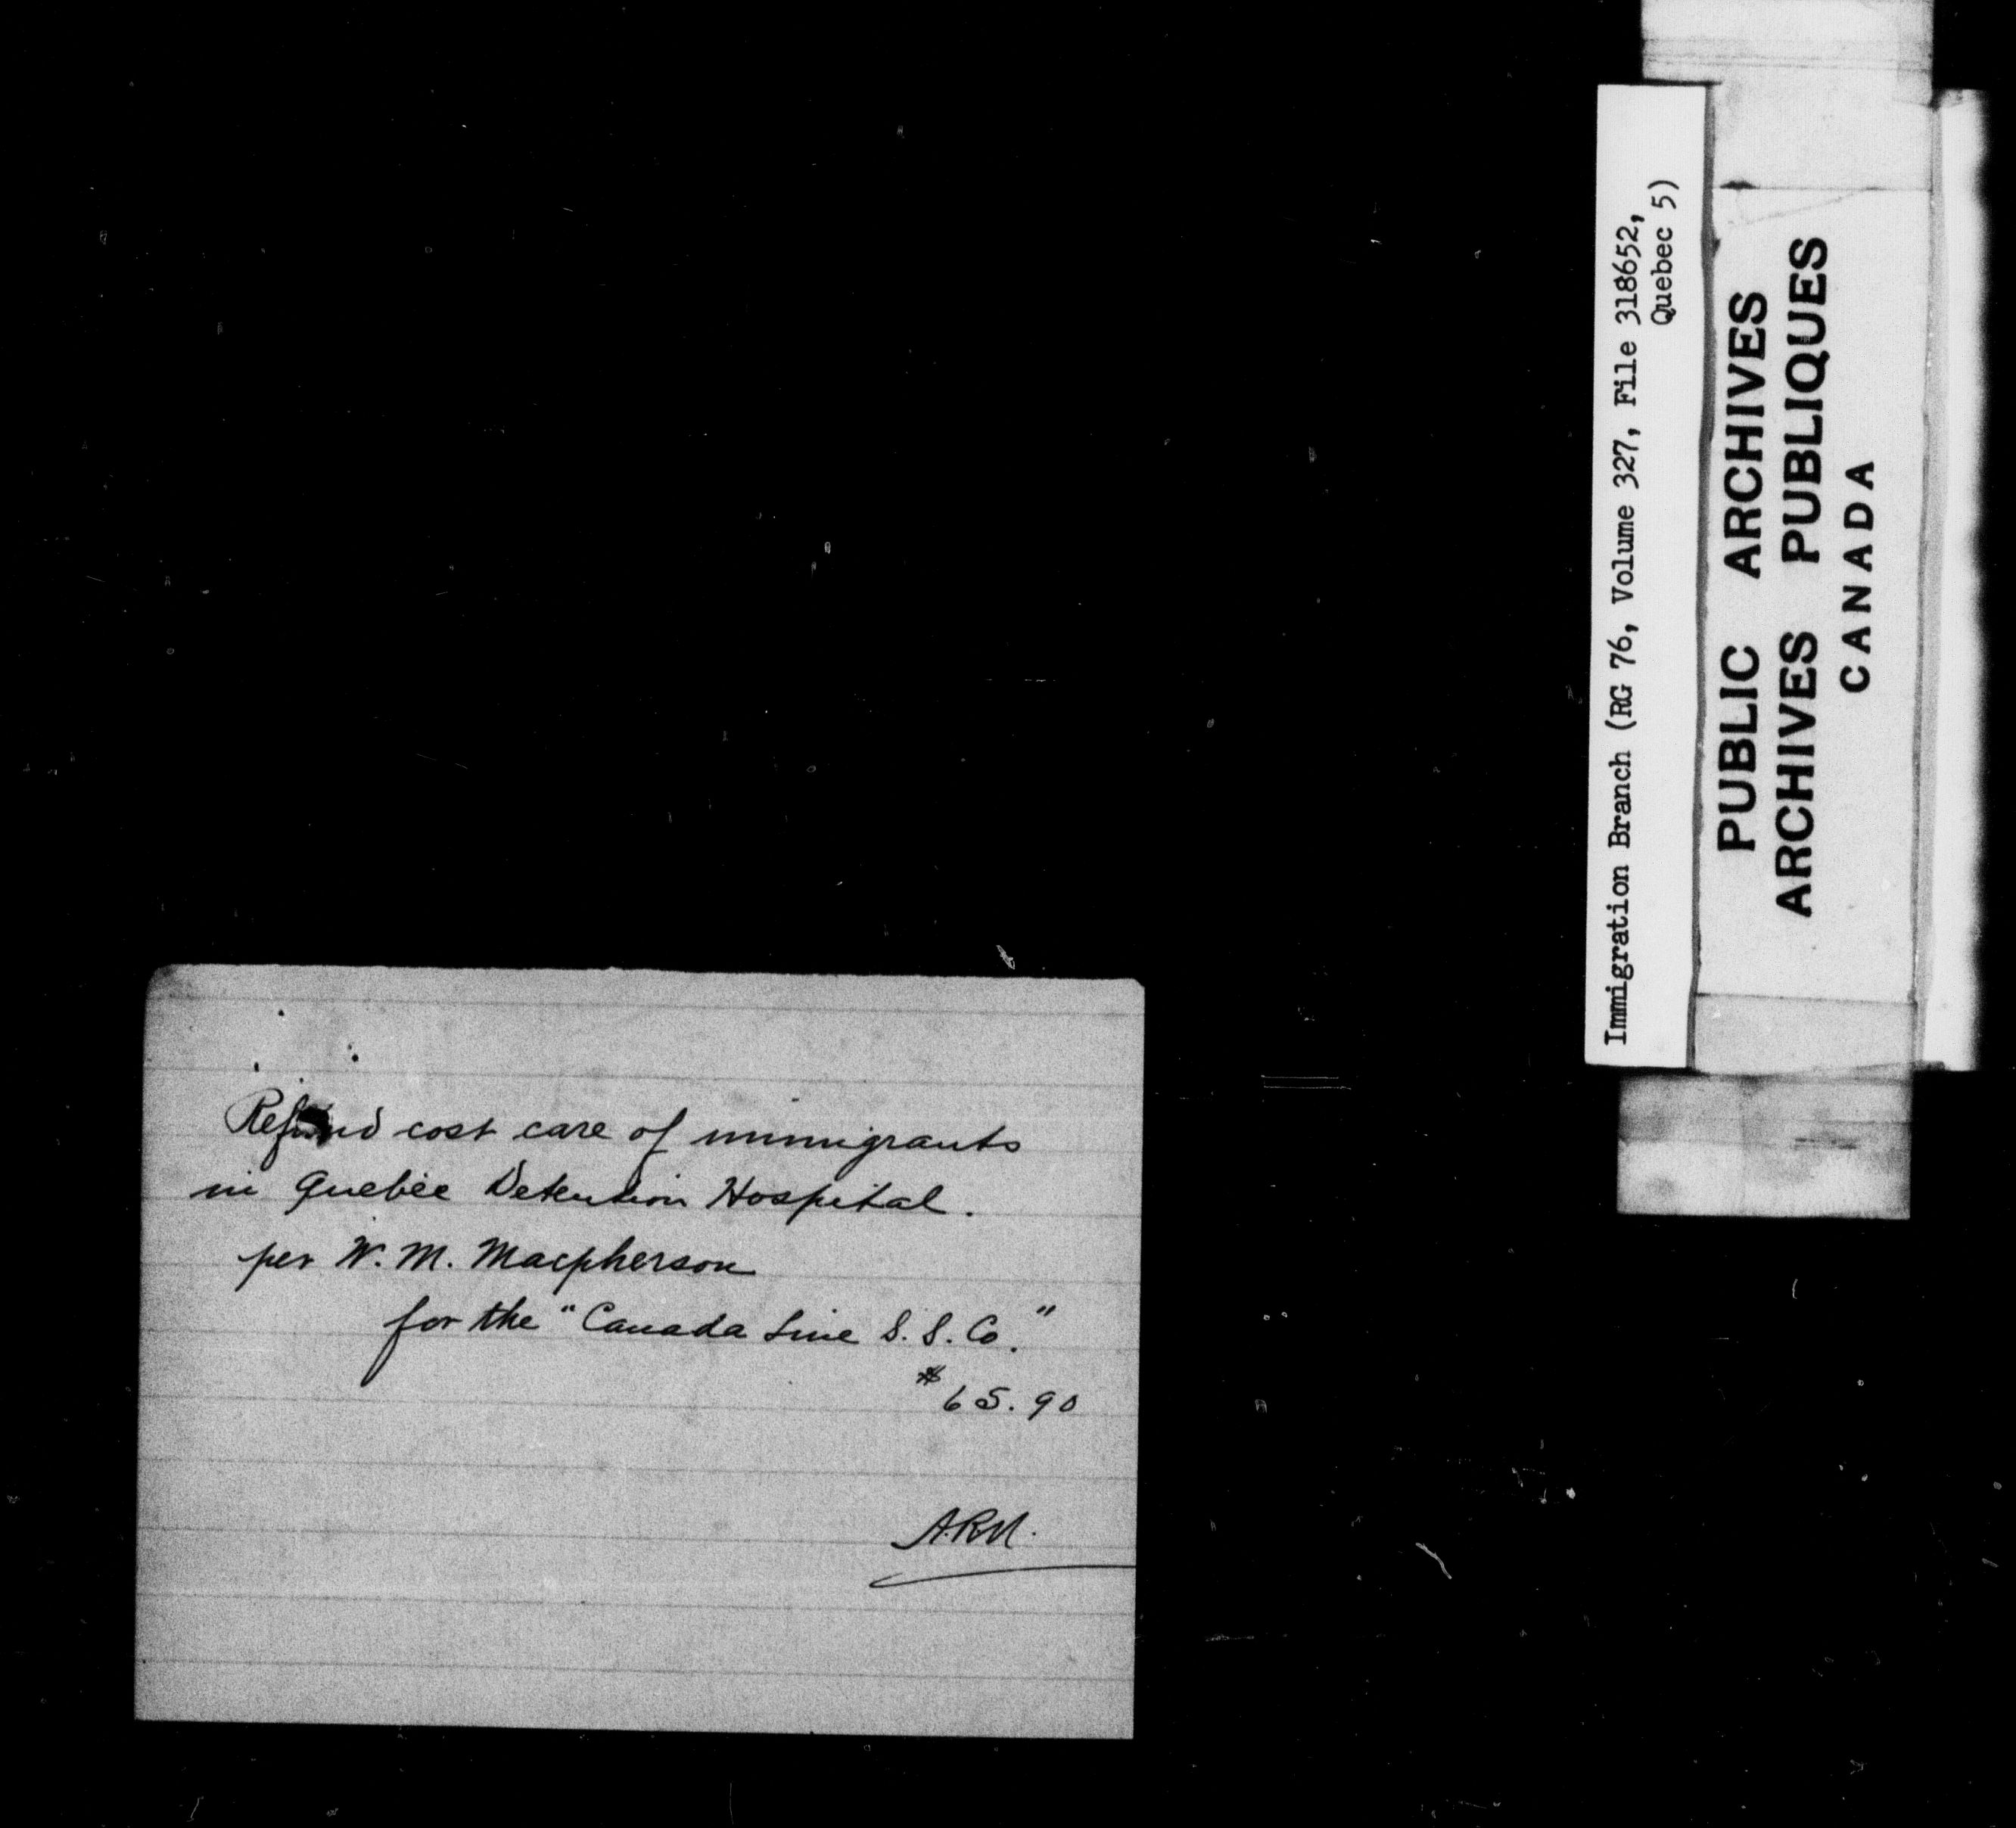 Refund cost care of immigrants
in Quebec Detention Hospital.
per W. M. Macpherson
for the "Canada Line S. S. Co."
$65.90
Immigration Branch (RG 76, Volume 327, File 318652,
Quebec 5)
PUBLIC ARCHIVES
ARCHIVES PUBLIQUES
CANADA